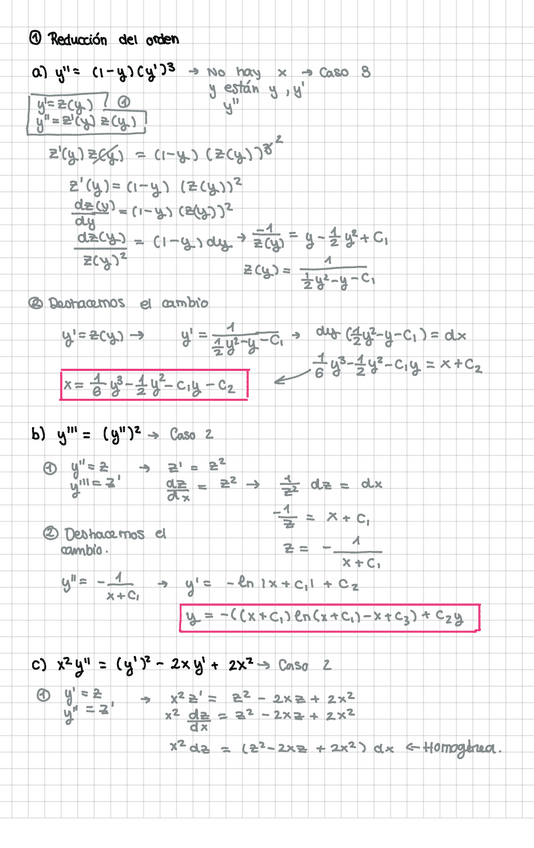 ① Reducción del orden
a) y'' = (1-y)(y')³ → No hay x → Caso 3
y están y, y'
y''
y'=z(y) ①
y''=z'(y) z(y)
z'(y) z(y) = (1-y) (z(y))³ ²
z'(y) = (1-y) (z(y))²
dz(y)/dy = (1-y) (z(y))²
dz(y)/z(y)² = (1-y) dy → -1/z(y) = y - 1/2 y² + C₁
z(y) = 1/(1/2 y² - y - C₁)
② Deshacemos el cambio
y' = z(y) → y' = 1/(1/2 y² - y - C₁) → dy (1/2 y² - y - C₁) = dx
1/6 y³ - 1/2 y² - C₁y = x + C₂
x = 1/6 y³ - 1/2 y² - C₁y - C₂
b) y''' = (y'')² → Caso 2
① y'' = z → z' = z²
y''' = z' dz/dx = z² → 1/z² dz = dx
-1/z = x + C₁
② Deshacemos el cambio.
z = - 1/(x + C₁)
y'' = - 1/(x+C₁) → y' = -ln |x + C₁| + C₂
y = -((x+C₁) ln(x+C₁) - x + C₃) + C₂y
c) x²y'' = (y')² - 2xy' + 2x² → Caso 2
① y' = z → x²z' = z² - 2xz + 2x²
y'' = z' x² dz/dx = z² - 2xz + 2x²
x² dz = (z² - 2xz + 2x²) dx ← Homogénea.